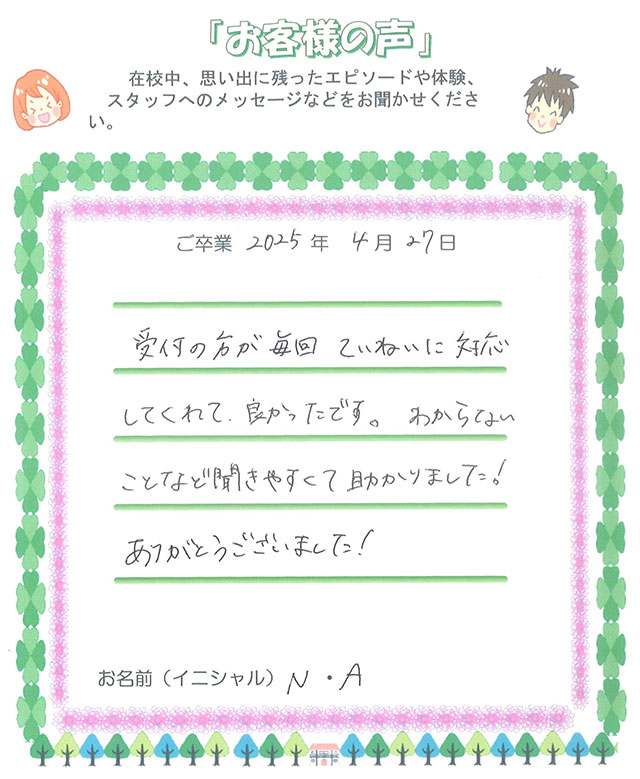 「お客様の声」
在校中、思い出に残ったエピソードや体験、
スタッフへのメッセージなどをお聞かせくださ
い。
ご卒業 2025 年 4 月 27 日
受付の方が毎回 ていねいに 対応
してくれて、良かったです。 わからない
ことなど聞きやすくて助かりました!
ありがとうございました!
お名前（イニシャル） N ・ A